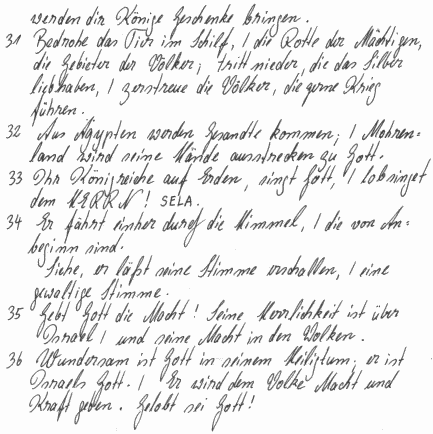 werden dir Könige Geschenke bringen.
31 Bedrohe das Tier im Schilf, | die Rotte der Mächtigen,
die Gebieter der Völker; tritt nieder, die das Silber
liebhaben, | zerstreue die Völker, die gerne Krieg
führen.
32 Aus Ägypten werden Gesandte kommen; | Mohren=
land wird seine Hände ausstrecken zu Gott.
33 Ihr Königreiche auf Erden, singt Gott, | lobsinget
dem HERRN! SELA.
34 Er fährt einher durch die Himmel, | die von An=
beginn sind.
Siehe, er läßt seine Stimme erschallen, | eine
gewaltige Stimme.
35 Gebt Gott die Macht! Seine Herrlichkeit ist über
Israel | und seine Macht in den Wolken.
36 Wundersam ist Gott in seinem Heiligtum; er ist
Israels Gott. | Er wird dem Volke Macht und
Kraft geben. Gelobt sei Gott!